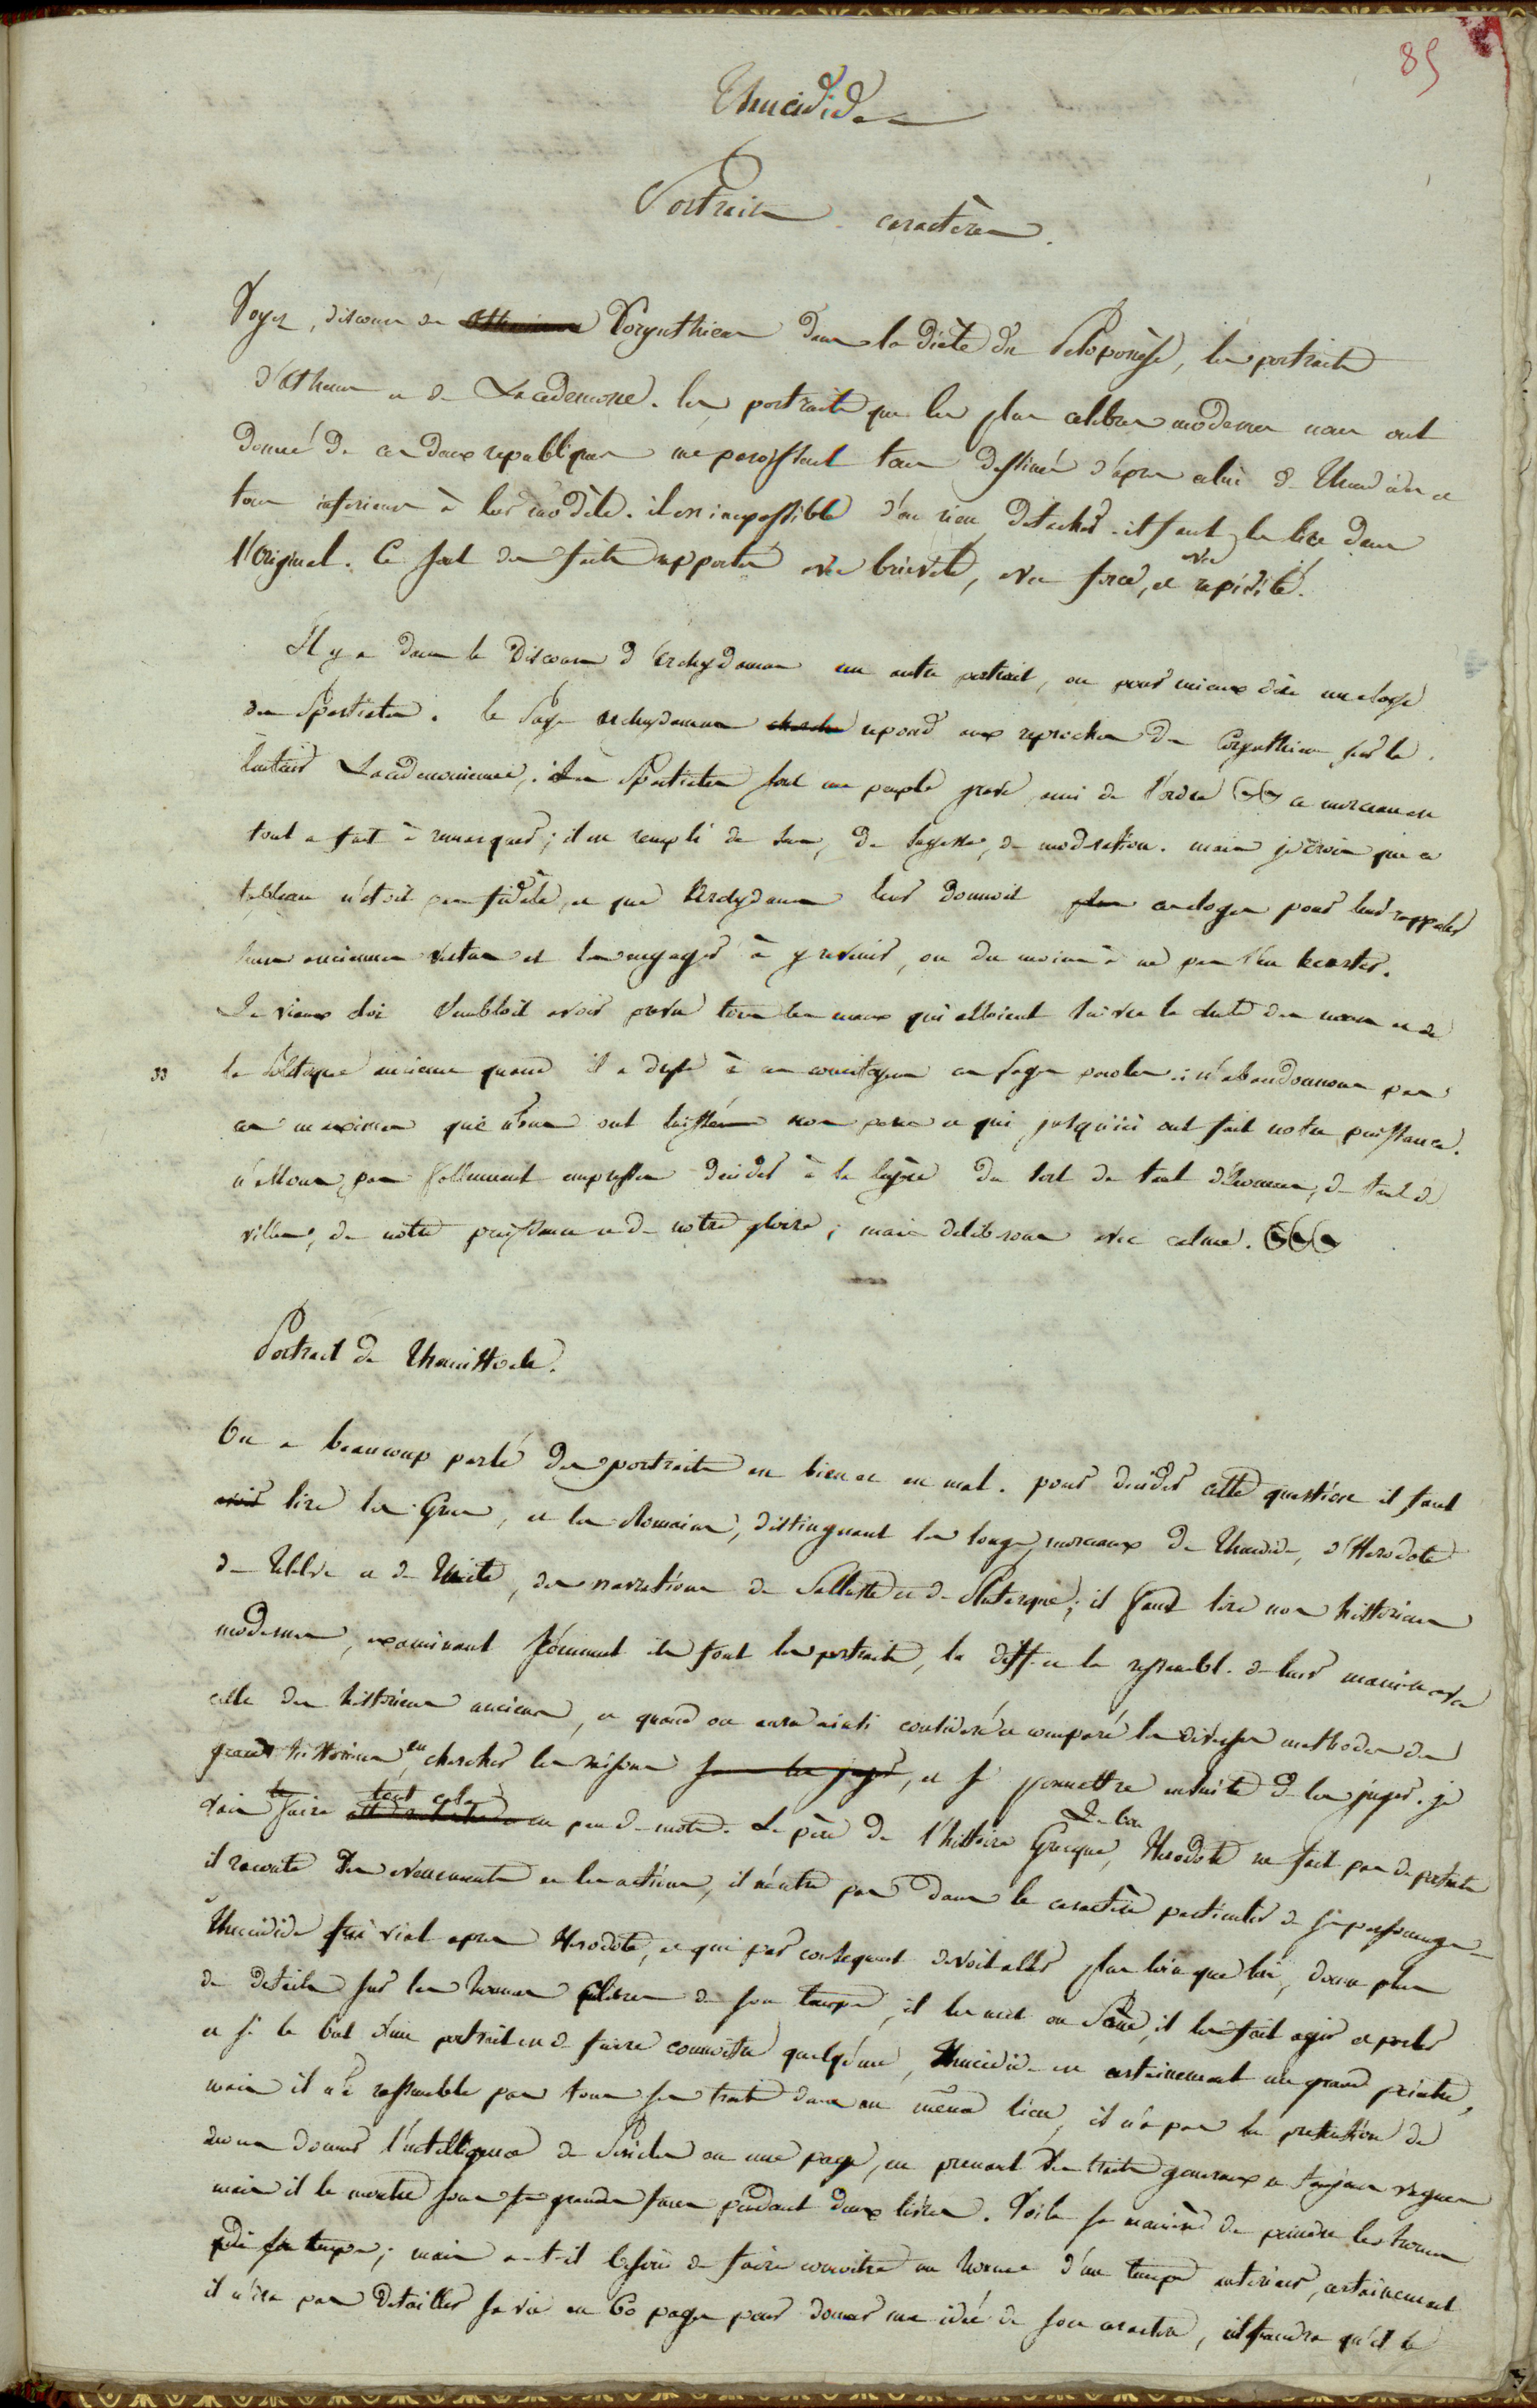 85
Thucidide
Portraits caractères.
Voyez, discours des Athéniens Corynthiens dans la diète du Peloponèse, les portraits
d'Athenes et de Lacedemone. les portraits que les plus celebres modernes nous ont
donné de ces deux republiques me paroissent tous dessinés d'apres celui de Thucidide et
tous inferieurs à leur modèle. il est impossible d'en rien detacher. il faut le lire dans
l'original. Ce sont des faits rapportés avec brièveté, avec force, et avec rapidité.
Il y a dans le Discours d'Archydamus un autre portrait, ou pour mieux dire un eloge
des Spartiates. le sage Archydamus cherche repond aux reproches des Corynthiens sur la
lenteur Lacedemonienne. Les Spartiates sont un peuple grave ami de l'ordre ce morceau est
tout a fait à remarquer; il est rempli de sens, de sagesse, de moderation. mais je crois que ce
tableau n'etoit pas fidèle, et que Archydamus leur donnoit plus ces eloges pour leur rappeler
leurs anciennes vertus et les engager à y revenir, ou du moins à ne pas s'en ecarter.
Le vieux roi sembloit avoir prevu tous les maux qui alloient suivre la chute des mœurs et de
33 la politique ancienne quand il a dit à ces concitoyens ces sages paroles: n'abandonnons pas
ces maximes que nous ont laissées nos peres et qui jusqu'ici ont fait notre puissance.
n'allons pas follement empressés decider à la legère du sort de tant d'hommes, de tant de
villes, de notre puissance et de notre gloire; mais deliberons avec calme.
Portrait de Themistocle.
On a beaucoup parlé des portraits en bien et en mal. pour decider cette question il faut
avoir lire les Grecs, et les Romains, distinguant les longs morceaux de Thucidide, d'Herodote
de et de Tacite, des narrations de Salluste et de Plutarque; il faut lire nos historiens
modernes, examinant comment ils font les portraits, la diff. et la ressembl. de leur maniere avec
celle des historiens anciens, et quand on aura ainsi consideré et comparé les diverses methodes des
grands historiens, en chercher les raisons sans les juger, et se permettre ensuite de les juger. je
vais le faire tout cela en peu de mots. Le père de l'histoire Grecque, Le bon Herodote ne fait pas de portraits
il raconte les evenements et les actions, il n'entre pas dans le caractère particulier de ses personnages
Thucidide qui vint apres Herodote, et qui par consequent devoit aller plus loin que lui, donne plus
de details sur les hommes celebres de son temps, il les met en Scène, il les fait agir et parler
et si le but d'un portrait est de faire connoitre quelqu'un, Thucidide est certainement un grand peintre,
mais il ne rassemble pas tous ses traits dans un même lieu, il n'a pas la pretention de
nous donner l'intelligence de Pericles en une page, en prenant des traits generaux et toujours vagues
mais il le montre sous ses grandes faces pendant deux livres. Voila sa manière de peindre les hommes
de son temps; mais a-t-il besoin de faire connoitre un homme d'un temps anterieur, certainement
il n'ira pas detailler sa vie en 60 pages pour donner une idée de son caractere, il faudra qu'il le